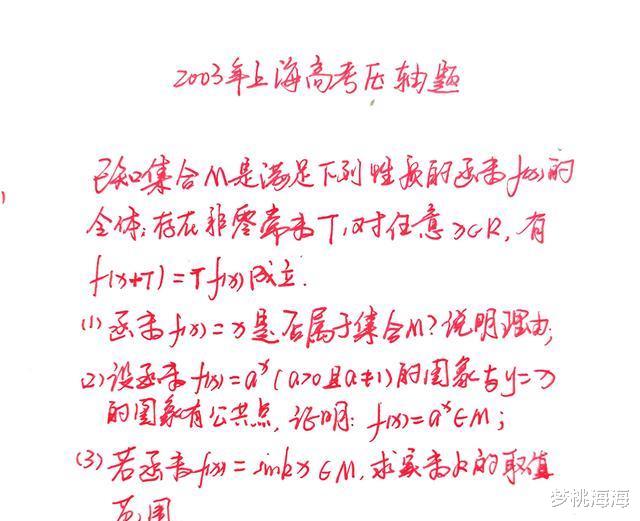 2003年上海高考压轴题
已知集合M是满足下列性质的函数f(x)的
全体:存在非零常数T,对任意x∈R,有
f(x+T)=Tf(x)成立.
(1) 函数f(x)=x是否属于集合M?说明理由;
(2) 设函数f(x)=aˣ(a>0且a≠1)的图象与y=x
的图象有公共点,证明: f(x)=aˣ∈M;
(3) 若函数f(x)=sinkx∈M,求实数k的取值
范围
梦桃海海